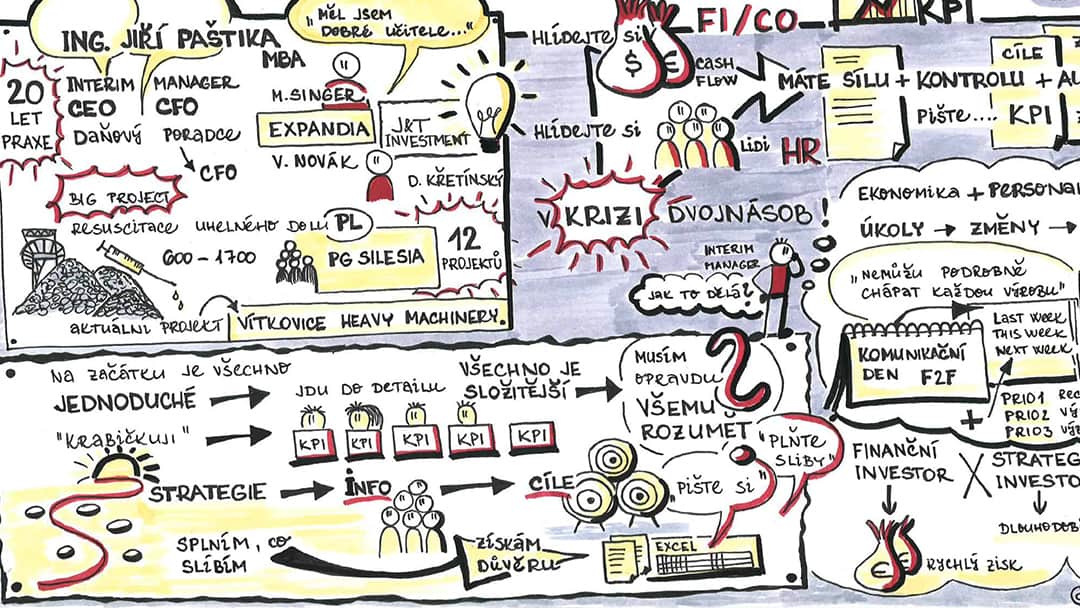 ING. JIŘÍ PAŠTIKA
MBA
20
LET
PRAXE
INTERIM MANAGER
CEO CFO
DAŇOVÝ PORADCE
CFO
BIG PROJECT
RESUSCITACE UHELNÉHO DOLU PL
600 - 1700
PG SILESIA
12
PROJEKTŮ
AKTUÁLNI PROJEKT
VÍTKOVICE HEAVY MACHINERY.
„MĚL JSEM
DOBRÉ UČITELE..."
M. SINGER
EXPANDIA
J&T
INVESTMENT
V. NOVÁK
D. KŘETÍNSKÝ
HLÍDEJTE SI
$ €
CASH
FLOW
FI/CO
HLÍDEJTE SI
LIDI HR
V KRIZI DVOJNÁSOB!
INTERIM
MANAGER
JAK TO DĚLÁ?
KPI
MÁTE SÍLU + KONTROLU +
CÍLE
PIŠTE.... KPI
EKONOMIKA +
ÚKOLY → ZMĚNY →
„NEMŮŽU PODROBNĚ
CHÁPAT KAŽDOU VÝROBU"
KOMUNIKAČNÍ
DEN F2F
LAST WEEK
THIS WEEK
NEXT WEEK
+
PRIO1
PRIO2
PRIO3
FINANČNÍ
INVESTOR
RYCHLÝ ZISK
NA ZAČÁTKU JE VŠECHNO
JEDNODUCHÉ
JDU DO DETAILU
VŠECHNO JE
SLOŽITĚJŠÍ
MUSÍM
OPRAVDU
VŠEMU
ROZUMĚT
?
"KRABIČKUJI"
KPI KPI KPI KPI KPI
STRATEGIE
INFO
CÍLE
„PIŠTE SI"
"PLŇTE
SLIBY"
SPLNÍM, CO
SLÍBÍM
ZÍSKÁM
DŮVĚRU
EXCEL